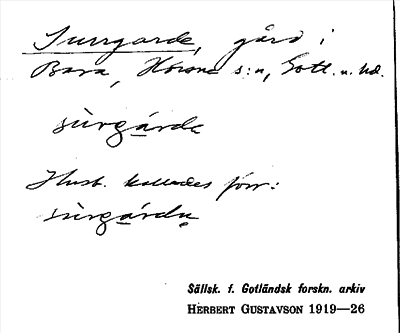 Surrgarde, gård i
Bara, Hörsne s:n, Gotl. n. hd.
sùrgárdę
Husb. kallades förr:
sùrgárdu
Sällsk. f. Gotländsk forskn. arkiv
HERBERT GUSTAVSON 1919—26